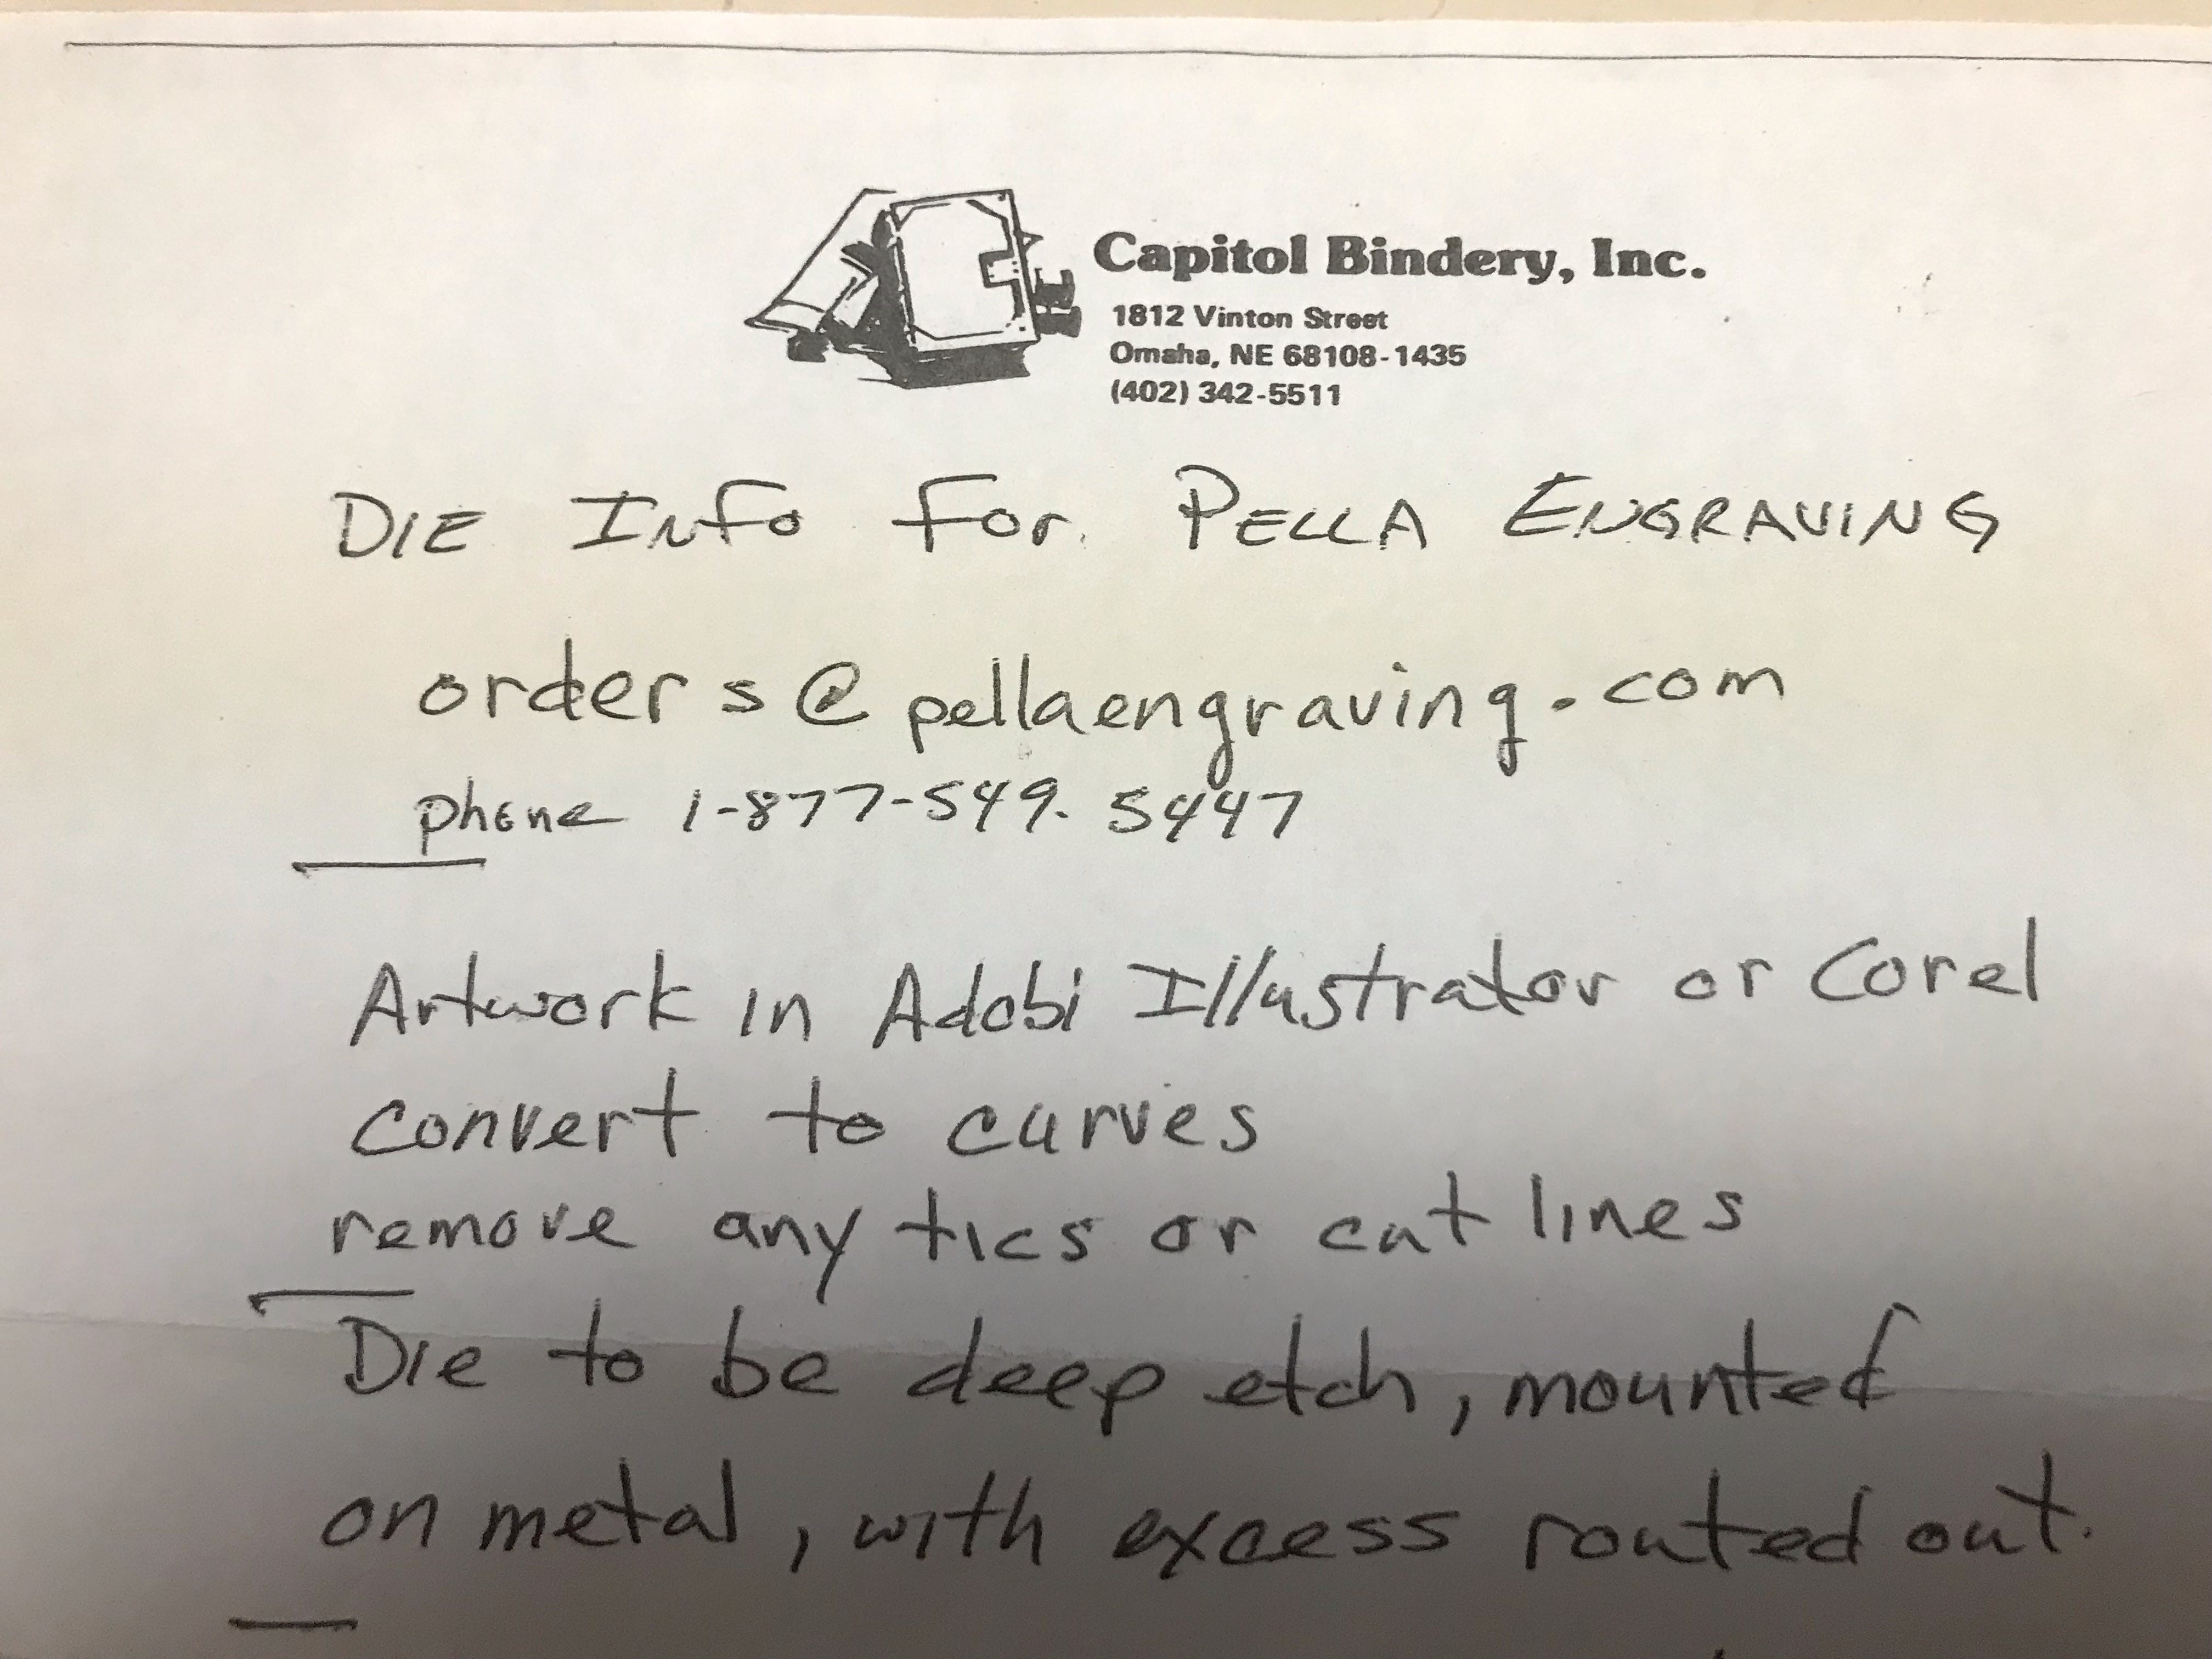 Capitol Bindery, Inc.
1812 Vinton Street
Omaha, NE 68108-1435
(402) 342-5511
DIE Info For. PELLA ENGRAVING
orders@pellaengraving.com
phone 1-877-549-5447
Artwork in Adobi Illustrator or Corel
convert to curves
remove any tics or cut lines
Die to be deep etch, mounted
on metal, with excess routed out.